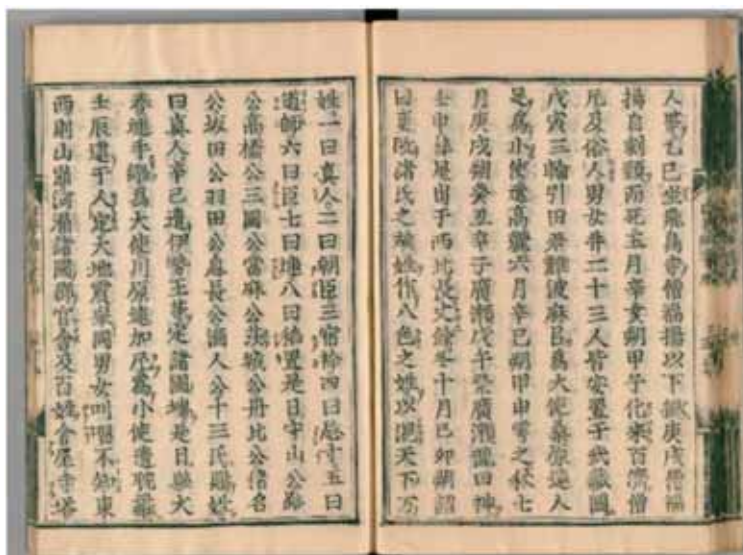 人勝乙巳坐飛鳥寺僧福揚以下獄庚戌僧福
揚自刺頸而死五月辛亥朔甲子化来百濟僧
尼及俗人男女并二十三人皆安置于武藏國
戊寅三輪引田君難波麻呂爲大使桑原連人
足爲小使遣高麗六月辛巳朔甲申雩之秋七
月庚戌朔癸丑幸于廣瀬戊午祭廣瀬龍田神
壬申彗星出于西北長丈餘冬十月己卯朔詔
曰更改諸氏之族姓作八色之姓以混天下万
姓一曰真人二曰朝臣三宿祢四曰忌寸五曰
道師六曰臣七曰連八曰稻置是日守山公路
公高橋公三國公當麻公茨城公丹比公猪名
公坂田公羽田公息長公酒人公十三氏賜姓
曰真人辛巳遣伊勢王等定諸國堺是日縣犬
養連手繦爲大使川原連加尼爲小使遣耽羅
壬辰逮于人定大地震擧國男女叫唱不知東
西則山崩河涌諸國郡官舍及百姓倉屋寺塔